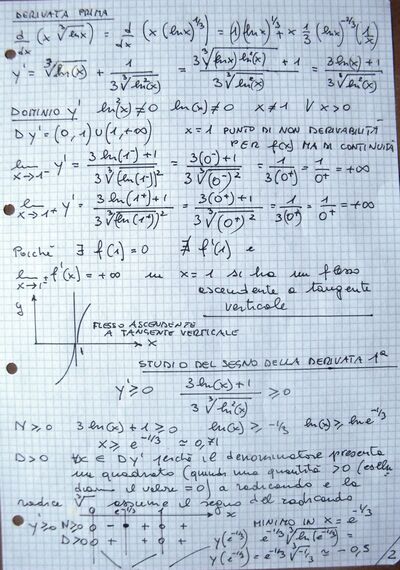 DERIVATA PRIMA
d/dx (x ∛ln x) = d/dx (x (ln x)^1/3) = (1)(ln x)^1/3 + x 1/3 (ln x)^-2/3 (1/x)
y' = ∛ln(x) + 1/(3 ∛ln²(x)) = (3 ∛(ln(x) ln²(x)) + 1)/(3 ∛ln²(x)) = (3 ln(x) + 1)/(3 ∛ln²(x))
DOMINIO y' ln²(x) ≠ 0 ln(x) ≠ 0 x ≠ 1 V x > 0
D y' = (0, 1) ∪ (1, +∞) x = 1 PUNTO DI NON DERIVABILITÀ
PER f(x) MA DI CONTINUITÀ
lim x→1⁻ y' = (3 ln(1⁻) + 1)/(3 ∛(ln(1⁻))²) = (3(0⁻) + 1)/(3 ∛(0⁻)²) = 1/(3(0⁺)) = 1/0⁺ = +∞
lim x→1⁺ y' = (3 ln(1⁺) + 1)/(3 ∛(ln(1⁺))²) = (3(0⁺) + 1)/(3 ∛(0⁺)²) = 1/(3(0⁺)) = 1/0⁺ = +∞
Poiché ∃ f(1) = 0 ∄ f'(1) e
lim x→1± f'(x) = +∞ in x = 1 si ha un flesso
ascendente a tangente
verticale
y
FLESSO ASCENDENTE
A TANGENTE VERTICALE
1 x
STUDIO DEL SEGNO DELLA DERIVATA 1ª
y' ≥ 0 (3 ln(x) + 1)/(3 ∛ln²(x)) ≥ 0
N ≥ 0 3 ln(x) + 1 ≥ 0 ln(x) ≥ -1/3 ln(x) ≥ ln e^-1/3
x ≥ e^-1/3 ≃ 0,71
D > 0 ∀x ∈ D y' perché il denominatore presenta
un quadrato (quindi una quantità > 0 (esclu
diamo il valore = 0) a radicando e la
radice ∛ assume il segno del radicando
0 e^-1/3 1 x
y' ≥ 0 N ≥ 0 0 - + 0 +
D > 0 0 + + 0 +
MINIMO IN x = e^-1/3
y(e^-1/3) = e^-1/3 ∛ln(e^-1/3) =
y(e^-1/3) = e^-1/3 ∛-1/3 ≃ -0,5
2